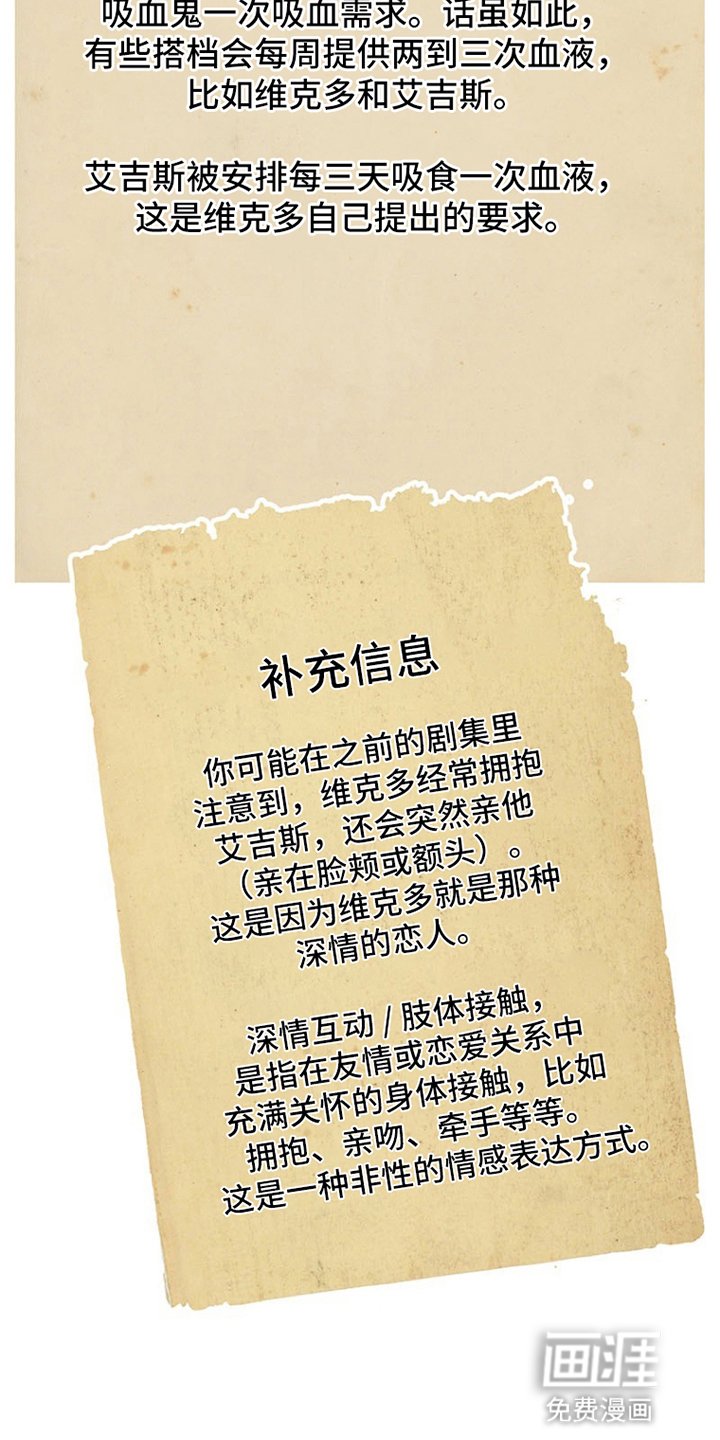 吸血鬼一次吸血需求。话虽如此，
有些搭档会每周提供两到三次血液，
比如维克多和艾吉斯。
艾吉斯被安排每三天吸食一次血液，
这是维克多自己提出的要求。
补充信息
你可能在之前的剧集里
注意到，维克多经常拥抱
艾吉斯，还会突然亲他
（亲在脸颊或额头）。
这是因为维克多就是那种
深情的恋人。
深情互动/肢体接触，
是指在友情或恋爱关系中
充满关怀的身体接触，比如
拥抱、亲吻、牵手等等。
这是一种非性的情感表达方式。
画涯
免费漫画